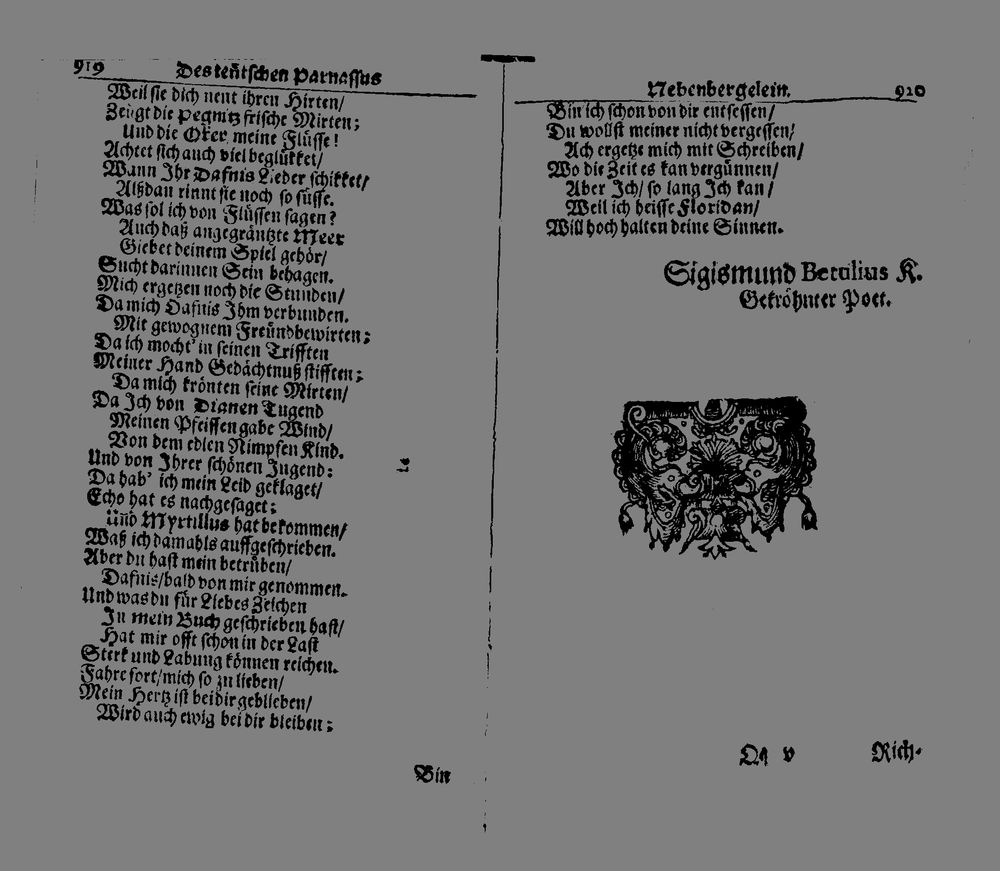 919 Des teütschen Parnassus
Weil sie dich nent ihren Hirten/
Zeugt die Pegnitz frische Mirten;
Und die Oker meine Flüsse!
Achtet sich auch viel beglükket/
Wann Ihr Dafnis Lieder schikket/
Alßdan rinnt sie noch so süsse.
Was sol ich von Flüssen sagen?
Auch daß angegräntzte Meer
Giebet deinem Spiel gehör/
Sucht darinnen Sein behagen.
Mich ergetzen noch die Stunden/
Da mich Dafnis Ihm verbunden.
Mit gewognem Freündbewirten;
Da ich mocht' in seinen Trifften
Meiner Hand Gedächtnuß stifften;
Da mich krönten seine Mirten/
Da Ich von Dianen Tugend
Meinen Pfeiffen gabe Wind/
Von dem edlen Nimpfen Kind.
Und von Ihrer schönen Jugend:
Da hab' ich mein Leid geklaget/
Echo hat es nachgesaget;
Und Myrtillus hat bekommen/
Waß ich damahls auffgeschrieben.
Aber du hast mein betrüben/
Dafnis/bald von mir genommen.
Und was du für Liebes Zeichen
In mein Buch geschrieben hast/
Hat mir offt schon in der Last
Sterk und Labung können reichen.
Fahre fort/mich so zu lieben/
Mein Hertz ist bei dir geblieben/
Wird auch ewig bei dir bleiben;
Bin
Nebenbergelein. 920
Bin ich schon von dir entsessen/
Du wollst meiner nicht vergessen/
Ach ergetze mich mit Schreiben/
Wo die Zeit es kan vergünnen/
Aber Ich/ so lang Ich kan/
Weil ich heisse Floridan/
Will hoch halten deine Sinnen.
Sigismund Betulius K.
Gekröhnter Poet.
Qq v Rich-